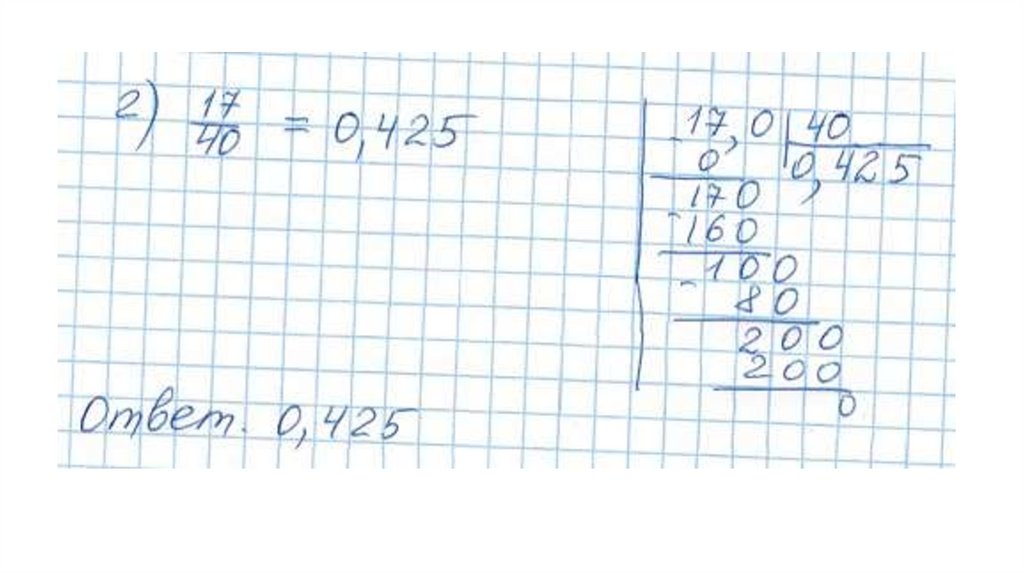 2) 17/40 = 0,425
17,0 | 40
- 0 | 0,425
170
- 160
100
- 80
200
200
0
Ответ. 0,425